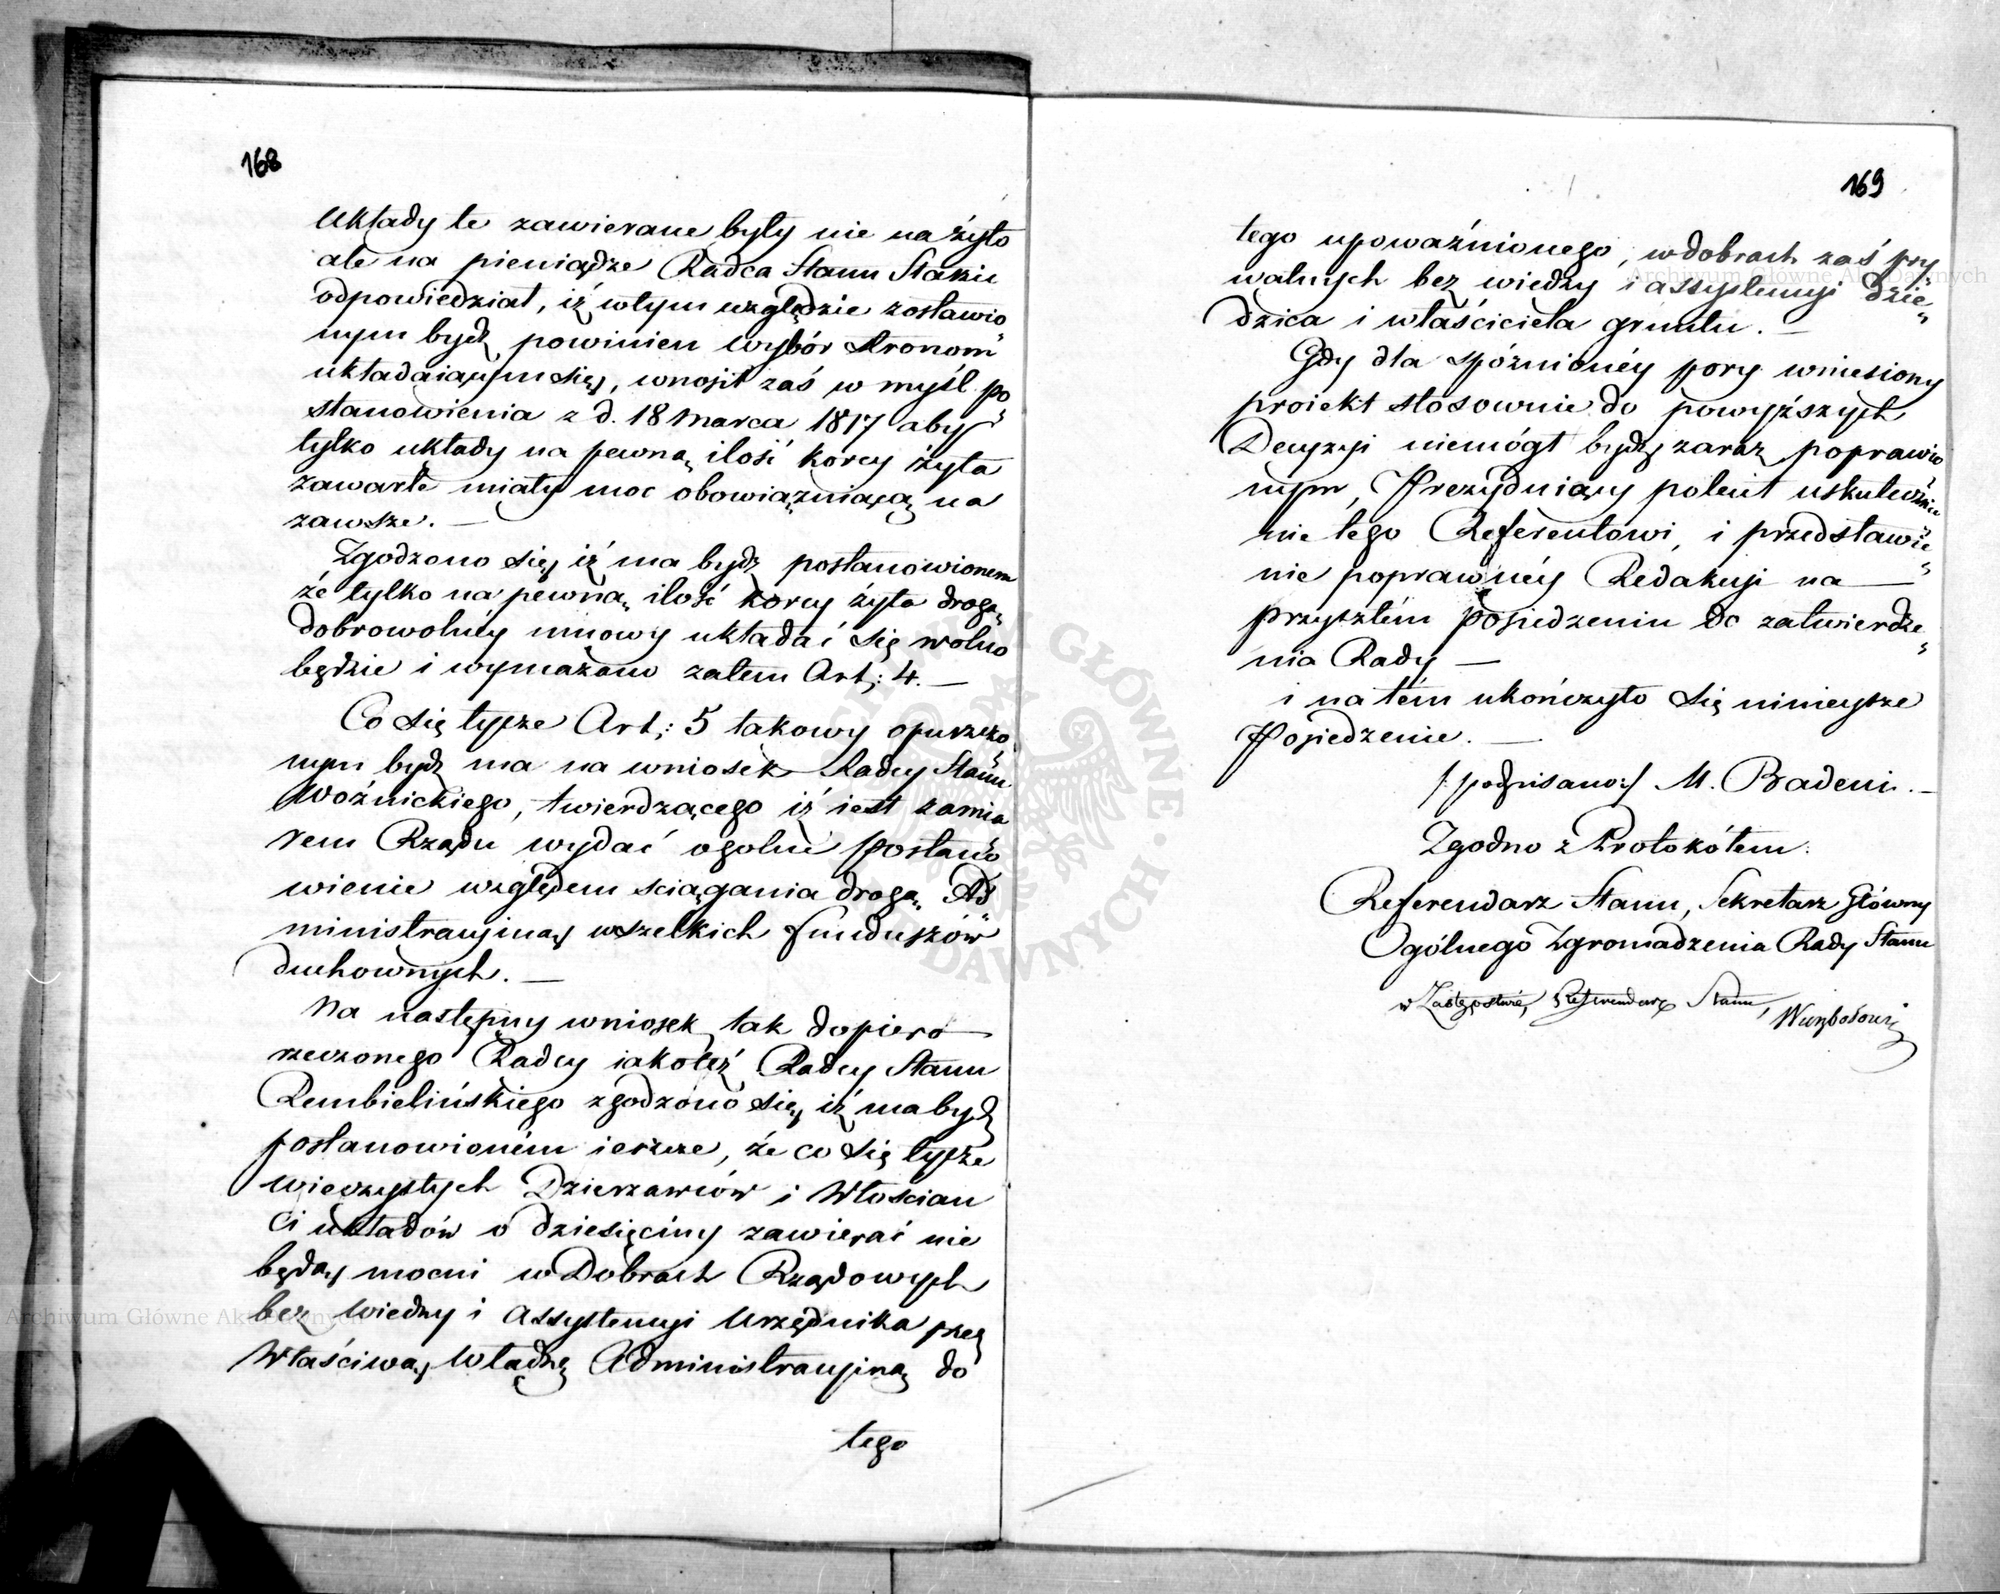 168
Układy te zawierane były nie na żyto
ale na pieniądze Radca Stanu Staszic
odpowiedział, iż w tym względzie zostawio„
nym bydź powinien wybór stronom
układaiącym się, wnosił zaś w myśl po„
stanowienia z d. 18 Marca 1817 aby
tylko układy na pewną ilość korcy żyta
zawarte miały moc obowiązuiącą na
zawsze. —
Zgodzono się, iż ma bydź postanowionem
że tylko na pewną ilość korcy żyta drogą
dobrowolnéy umowy układać się wolno
będzie i wymazano zatem Art: 4. —
Co się tycze Art: 5 takowy opuszczo„
nym bydź ma na wniosek Radcy Stanu
Woźnickiego, twierdzącego iż iest zamia„
rem Rządu wydać ogolne postano„
wienie względem sciągania drogą Ad„
ministracyiną wszelkich funduszów
duchownych. —
Na następny wniosek tak dopiero
rzeczonego Radcy iakoteż Radcy Stanu
Rembielińskiego zgodzono się, iż ma bydź
postanowioném ieszcze, że co się tycze
wieczystych Dzierzawców i Włoscian
Ci układów o dziesięciny zawierać nie
będą mocni w Dobrach Rządowych
bez wiedzy i assystencyi Urzędnika przez
Właściwą Władzę Administracyiną do
tego
169
tego upoważnionego, w dobrach zaś pry„
watnych bez wiedzy i assystencyi dzie„
dzica i właściciela gruntu. —
Gdy dla spóźnionéy pory wniesiony
proiekt stosownie do powyższych
Decyzyi niemógł bydź zaraz poprawio„
nym, Prezyduiący polecił uskutecznie„
nie tego Referentowi, i przedstawie„
nie poprawnéy Redakcyi na —
przyszłém posiedzeniu do zatwierdze„
nia Rady —
i na tém ukończyło się ninieysze
Posiedzenie. —
/: podpisano :/ M. Badeni. —
Zgodno z Protokółem:
Referendarz Stanu, Sekretarz Główny
Ogólnego Zgromadzenia Rady Stanu
w Zastępstwie, Referendarz Stanu,
Archiwum Główne Akt Dawnych
Archiwum Główne Akt Dawnych
ARCHIWUM GŁÓWNE AKT DAWNYCH